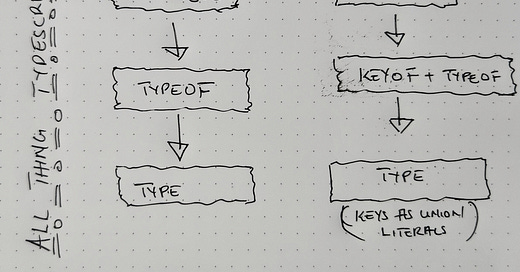 ALL THING TYPESCRI
TYPEOF
TYPE
KEYOF + TYPEOF
TYPE
(KEYS AS UNION
LITERALS)